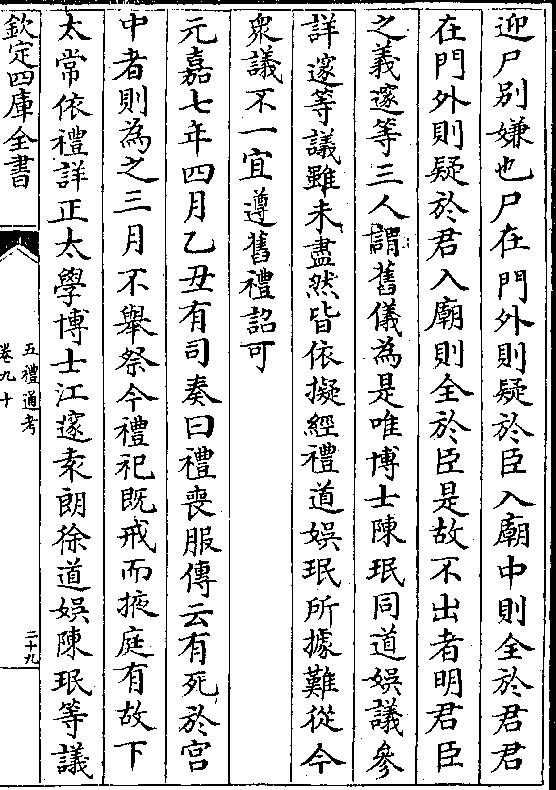 迎尸别嫌也尸在門外則疑於臣入廟中則全於君君
在門外則疑於君入廟則全於臣是故不出者明君臣
之義邃等三人謂舊儀為是唯博士陳珉同道娯議參
詳邃等議雖未盡然皆依擬經禮道娯珉所據難從今
衆議不一宜遵舊禮詔可
元嘉七年四月乙丑有司奏曰禮喪服傳云有死於宫
中者則為之三月不舉祭今禮祀既戒而掖庭有故下
太常依禮詳正太學博士江邃袁朗徐道娯陳珉等議
欽定四庫全書
五禮通考
卷九十
二十九